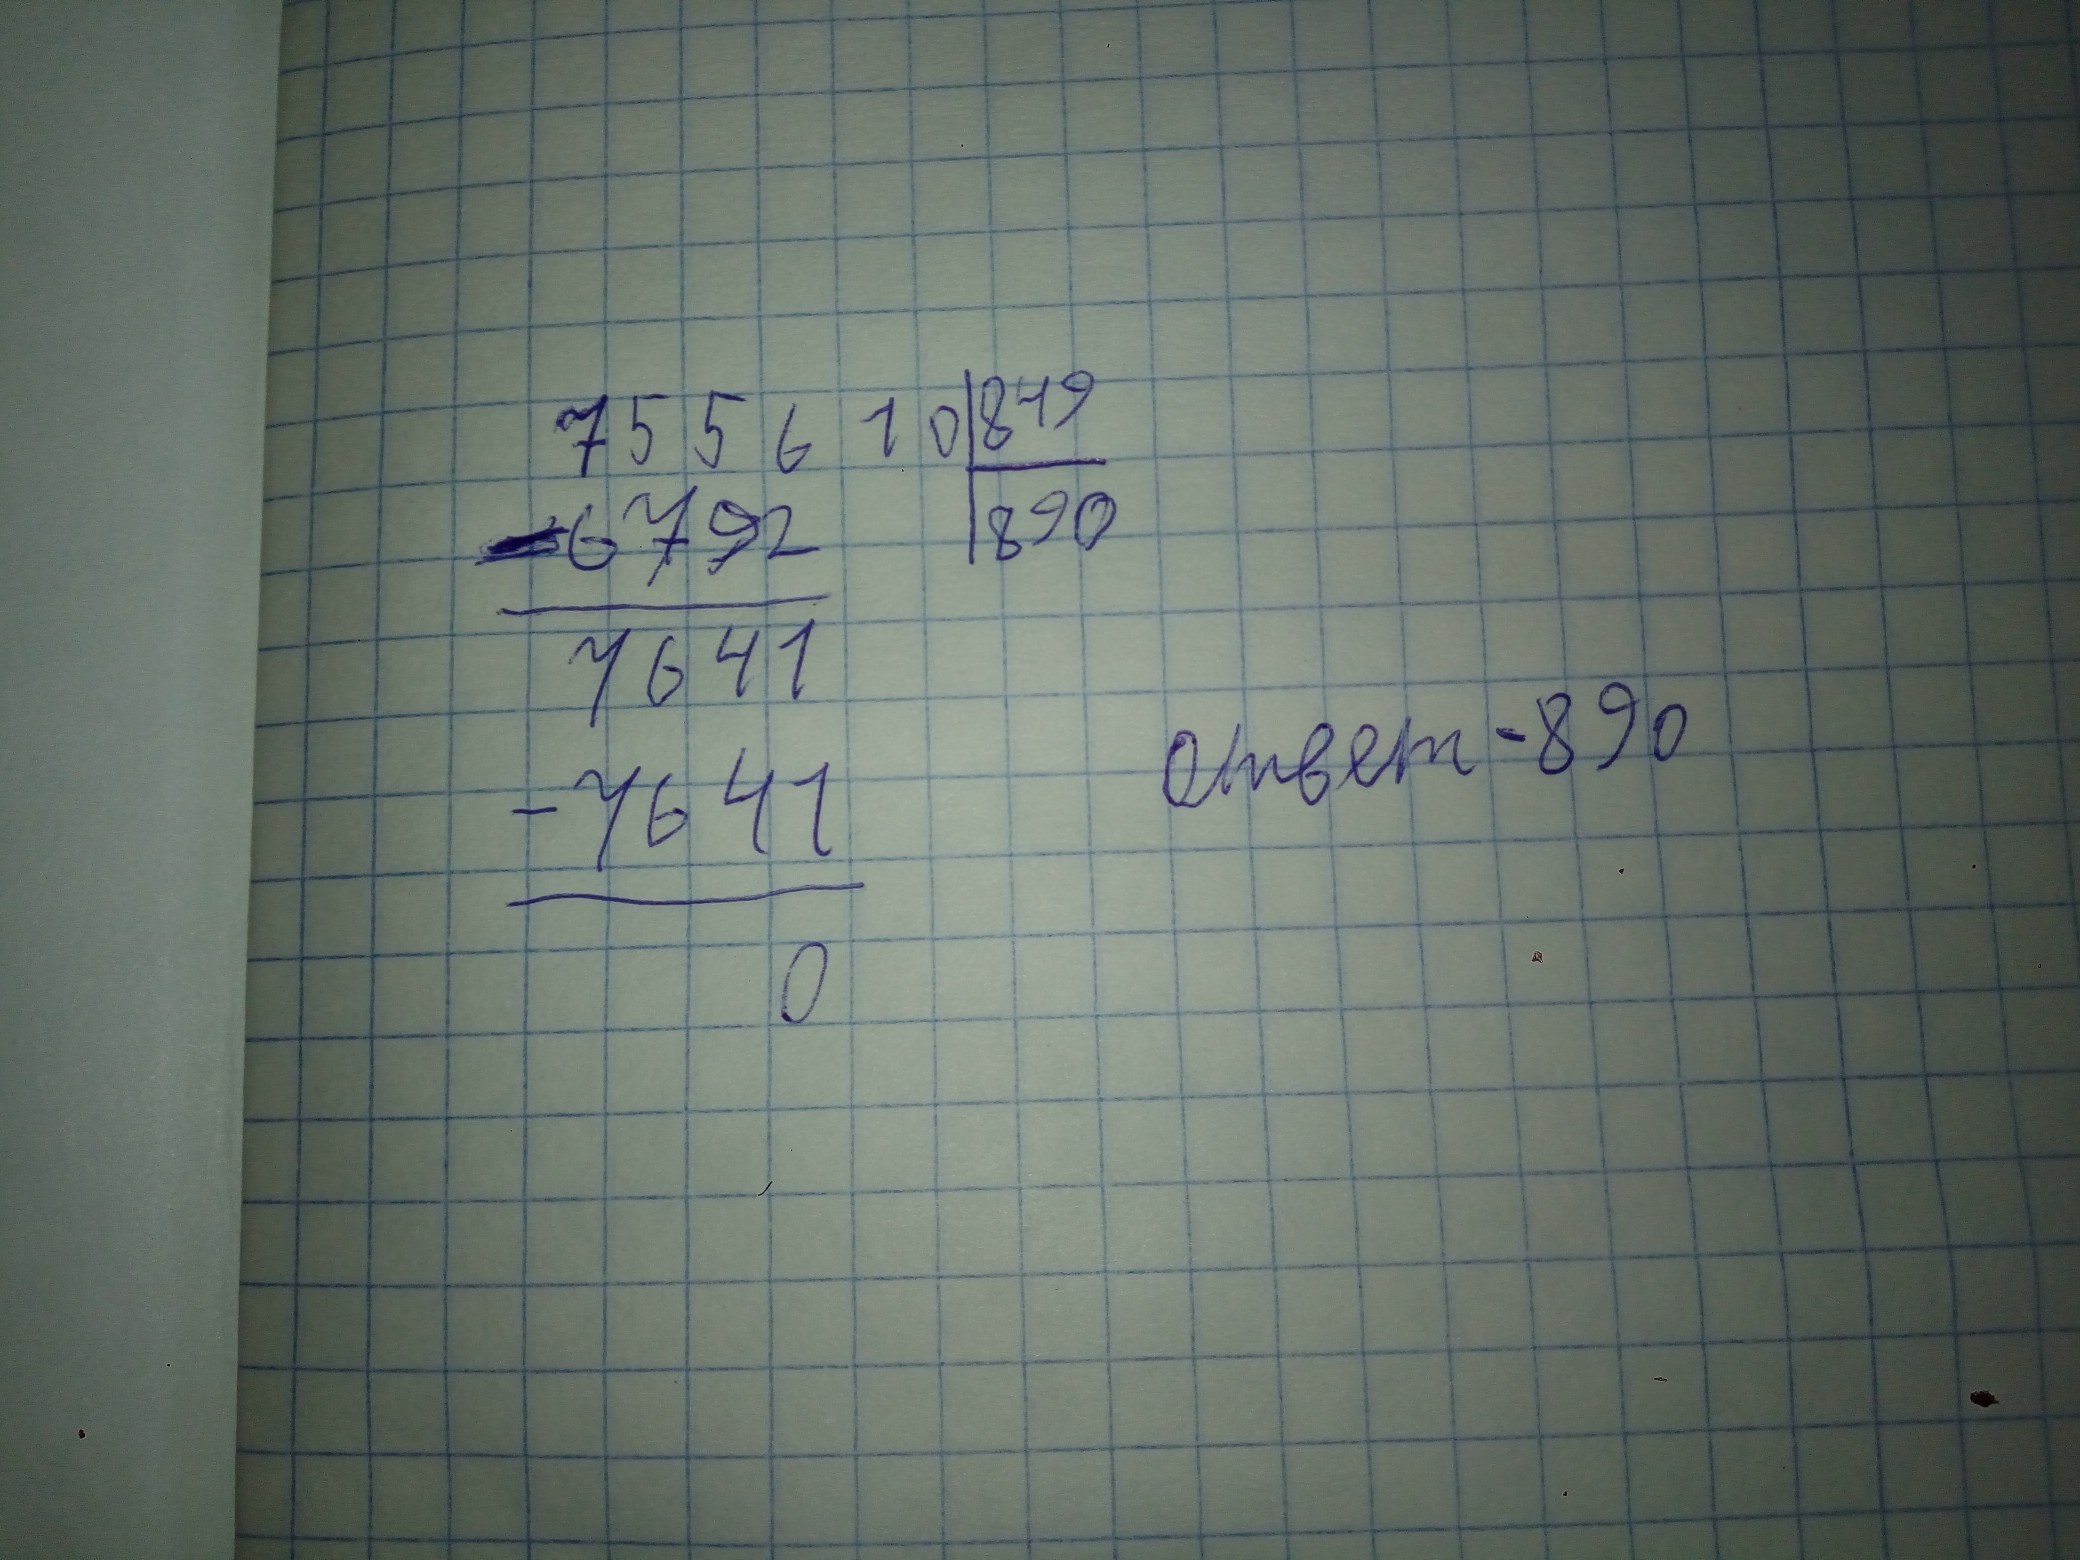 755610 849
-6792 890
7641
-7641
0
ответ - 890